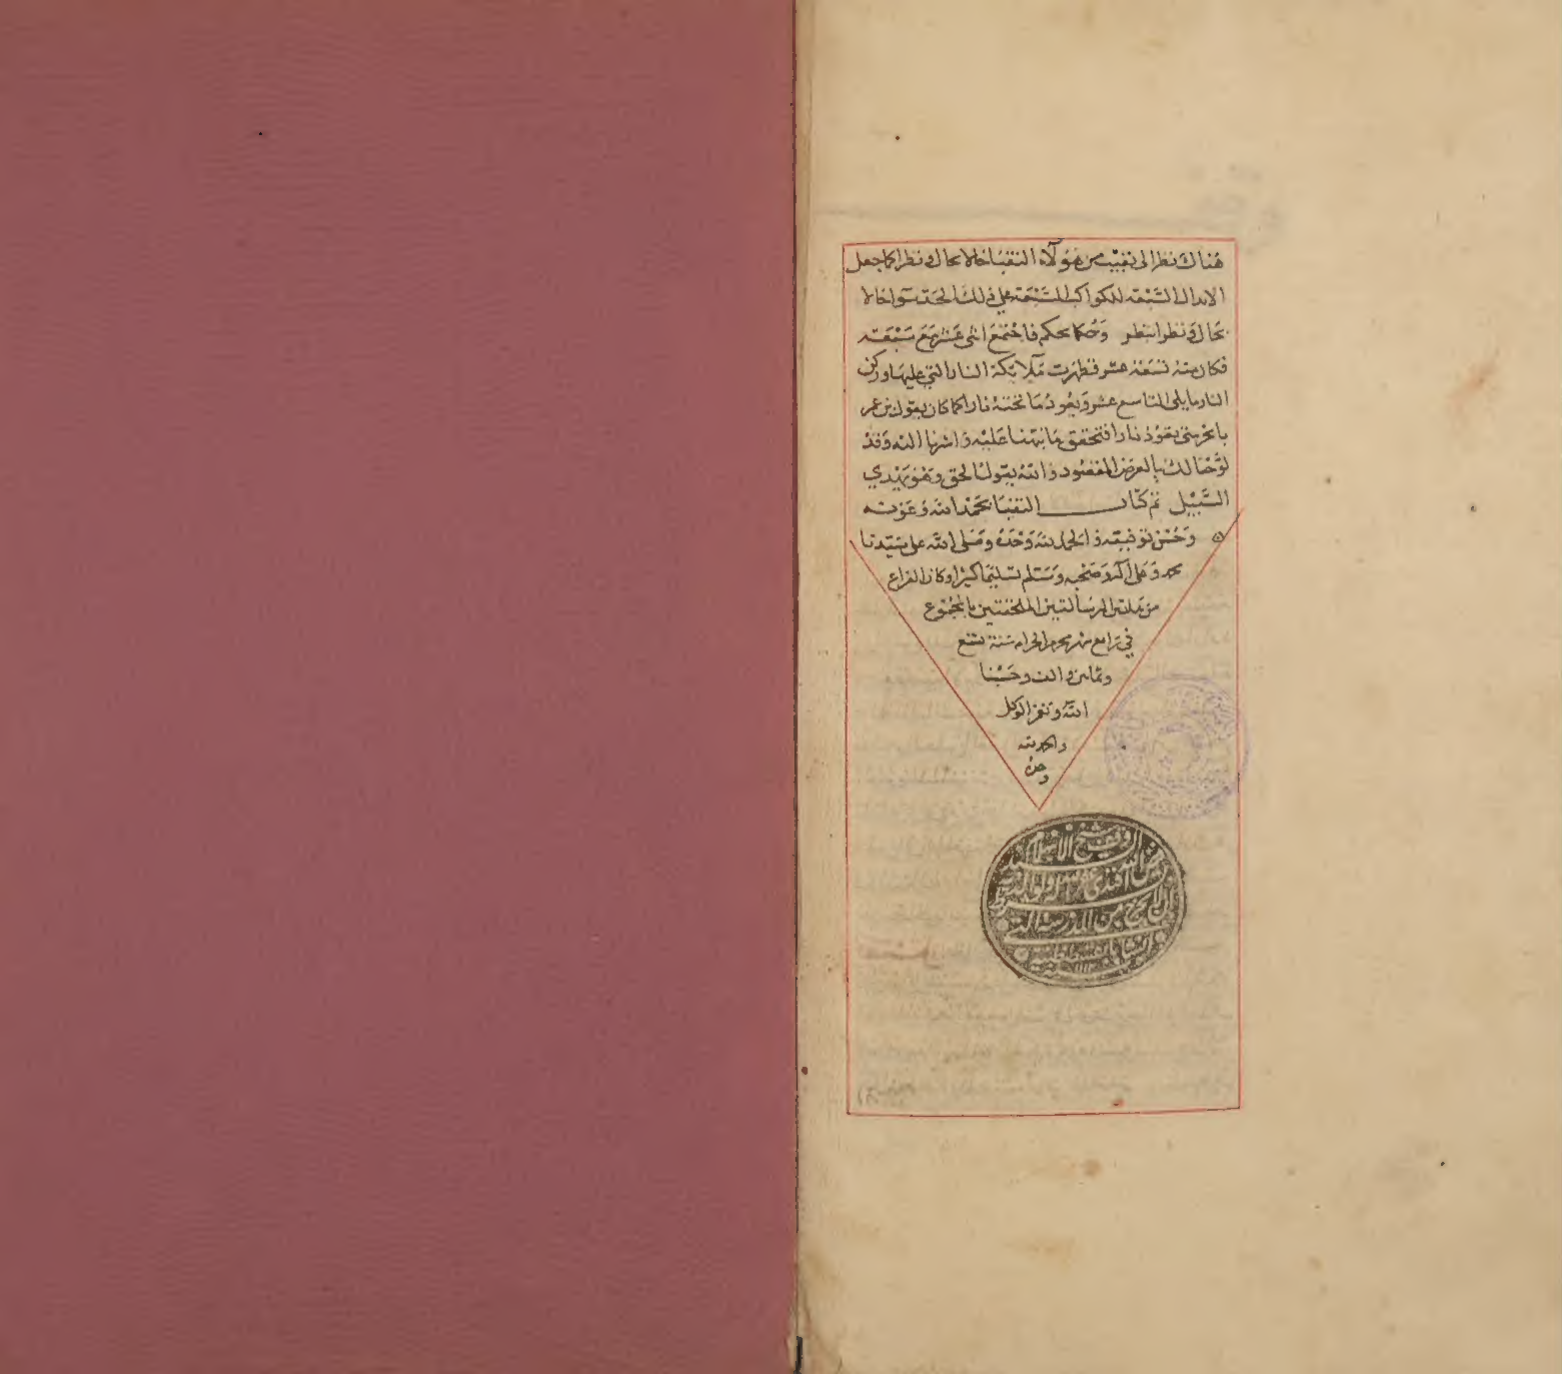 هناك نظر الى نقيب من هؤلاء النقبا حالا بحال ونظرا كما جعل
الابدال السبعة للكواكب السبعة على ذلك الحد سوا حالا
بحال ونظرا بنظر وحكما بحكم فاجتمع اثنى عشر مع سبعة
فكان منه تسعة عشر فظهرت ملائكة النار التي عليها وركن
النار مما يلى التاسع عشر ويعود ما تحته نارا كما كان يقول بن عمر
يا بحر متى يعود نارا فتحقق ما نبهنا عليه واشرنا اليه وقد
لوحنا لك بالغرض المقصود والله يقول الحق وهو يهدي
السبيل تم كتاب النقبا بحمد الله وعونه
وحسن توفيقه والحمد لله وحده وصلى الله على سيدنا
محمد وعلى آله وصحبه وسلم تسليما كثيرا وكان الفراغ
من هاتين الرسالتين الملحقتين بالمجموع
في رابع شهر محرم الحرام سنة تسع
وثمانين والف وحسبنا
الله ونعم الوكيل
والحمد لله
وحده
شيخ الاسلام
افندي
من المدرسة التي